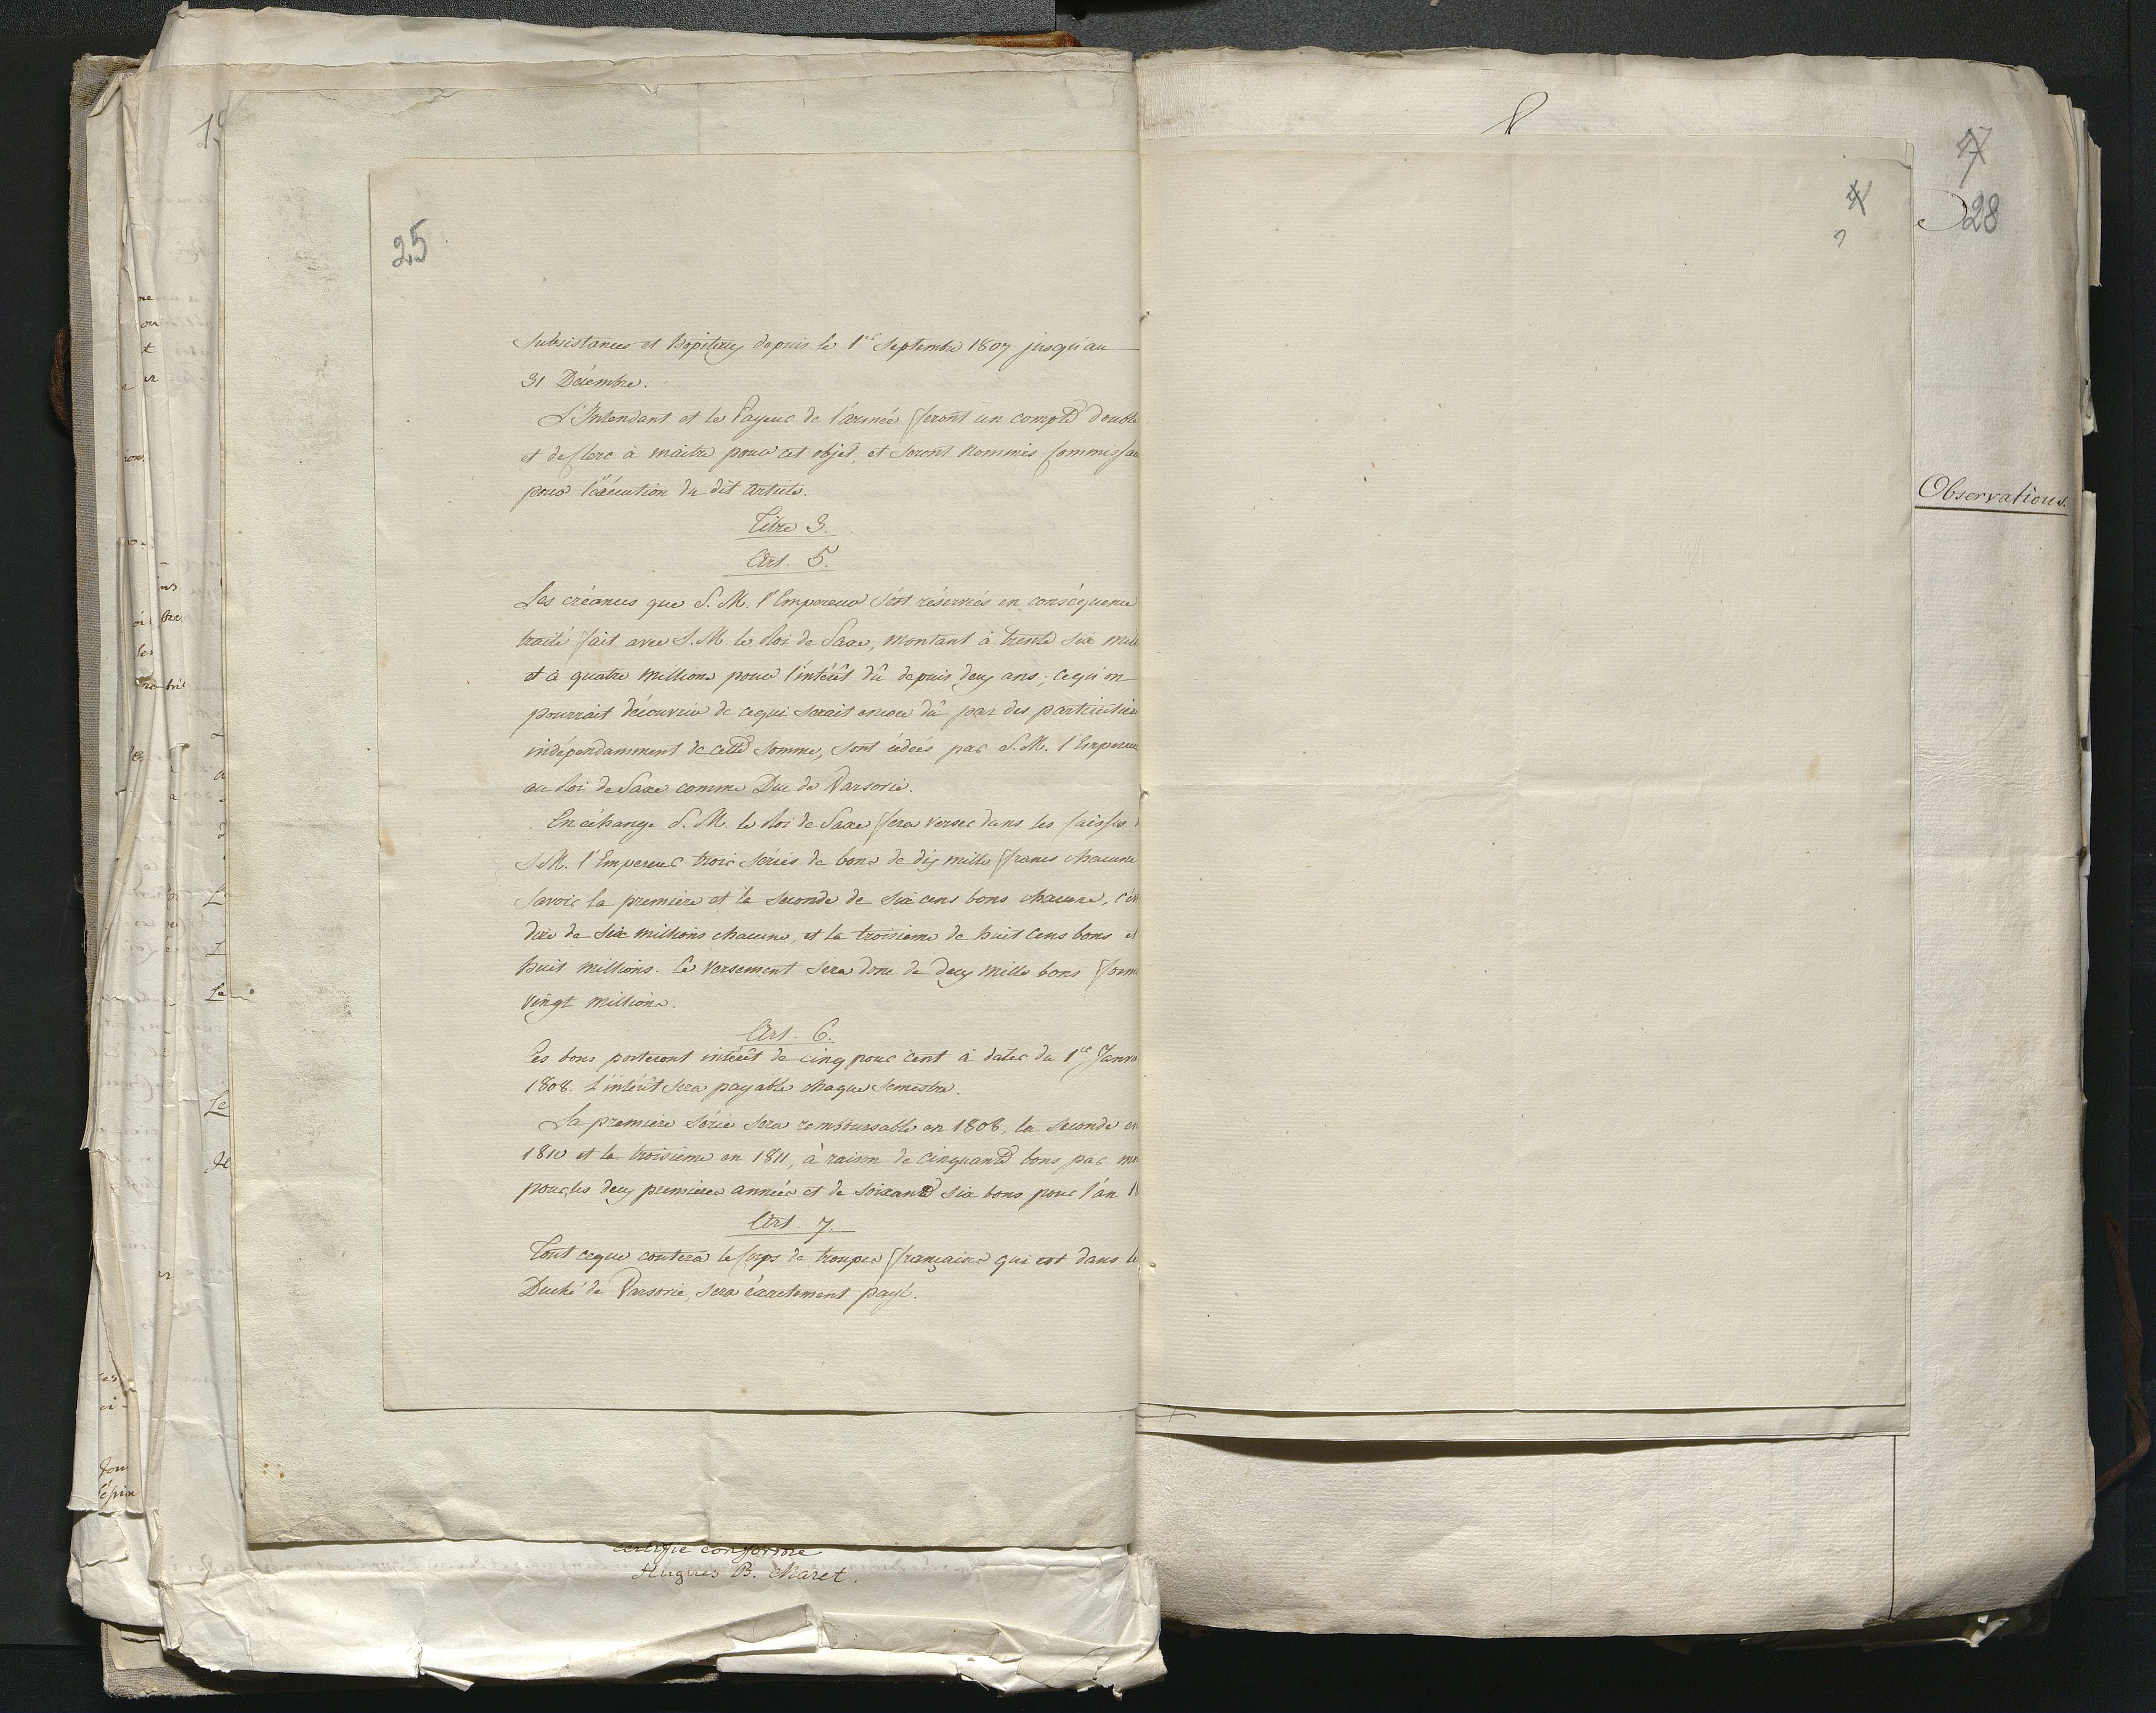 25
Subsistances et hopitaux depuis le 1er Septembre 1807 jusqu'au
31 Décembre.
L'Intendant et le Payeur de l'armée feront un compte double
et de Clerc à maitre pour cet objet, et seront nommés Commissai
pour l'éxécution du dit article.
Titre 3.
Art. 5.
Les créances que S. M. l'Empereur s'est réservées en conséquence
traité fait avec S. M. le Roi de Saxe, montant à trente six mill
et à quatre millions pour l'intérêt dû depuis deux ans; ce qu'on
pourrait découvrir de ce qui serait encore dû par des particulier
indépendamment de cette somme, sont cédées par S. M. l'Empereur
au Roi de Saxe comme Duc de Varsovie.
En échange S. M. le Roi de Saxe fera verser dans les Caisses
S. M. l'Empereur trois séries de bons de dix mille francs chacune
Savoir la première et la seconde de six cens bons chacune, c'es
dire de six millions chacune, et la troisième de huit cens bons et
huit millions. Ce versement sera donc de deux mille bons form
vingt millions.
Art. 6.
Ces bons porteront intérêt de cinq pour cent à dater du 1er Janv
1808. L'intérêt sera payable chaque Semestre.
La première Série sera remboursable en 1808, la seconde en
1810 et la troisième en 1811, à raison de cinquante bons par m
pour les deux premieres années et de soixante six bons pour l'an 1
Art. 7.
Tout ce que coutera le Corps de troupes françaises qui est dans le
Duché de Varsovie, sera éxactement payé.
certifié conforme
Hugues B. Maret.
7
28
Observations.